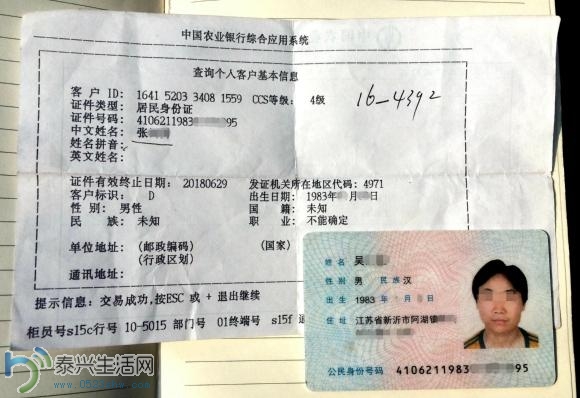 中国农业银行综合应用系统
查询个人客户基本信息
客户 ID: 1641 5203 3408 1559 CCS等级: 4级
16-4392
证件类型: 居民身份证
证件号码: 410621198395
中文姓名: 张
姓名拼音:
英文姓名:
证件有效终止日期: 20180629 发证机关所在地区代码: 4971
客户标识: D 出生日期: 1983
性 别: 男性 国 籍: 未知
民 族: 未知 职 业: 不能确定
单位地址: (邮政编码) (国家)
(行政区划)
通讯地址:
提示信息: 交易成功,按ESC 或 + 退出继续
柜员号s15c行号 10-5015 部门号 01终端号 s15f
姓名 吴
性别 男 民族 汉
出生 1983
住址 江苏省新沂市阿湖镇
公民身份号码 410621198395
泰兴生活网